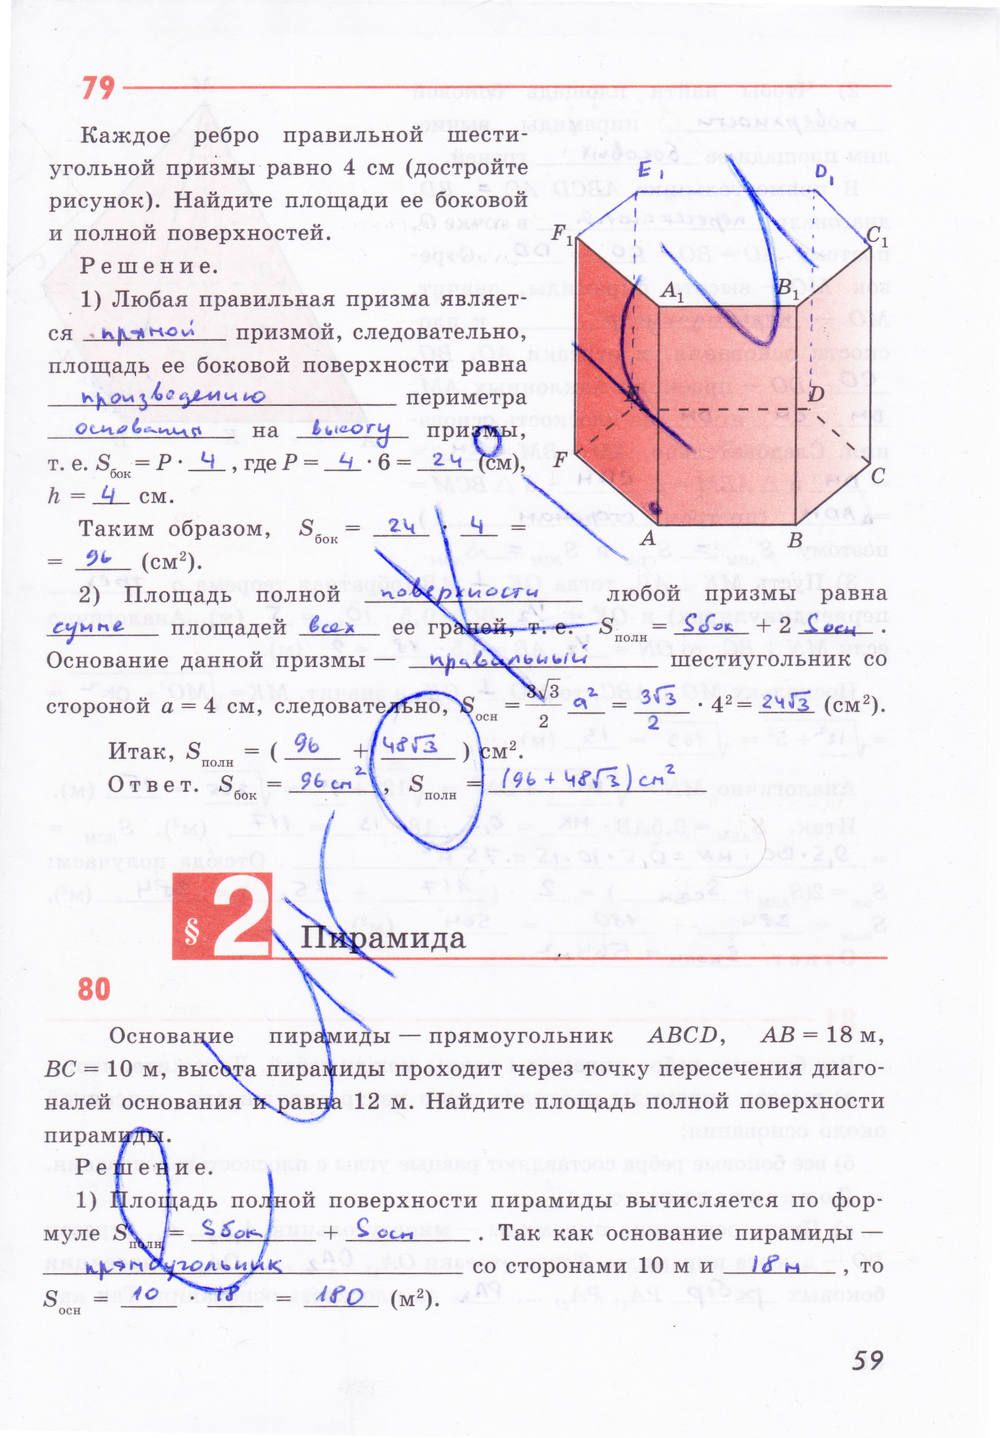 79
Каждое ребро правильной шести-
угольной призмы равно 4 см (достройте
рисунок). Найдите площади ее боковой
и полной поверхностей.
Решение.
1) Любая правильная призма являет-
ся прямой призмой, следовательно,
площадь ее боковой поверхности равна
произведению периметра
основания на высоту призмы,
т. е. Sбок = P · 4, где P = 4 · 6 = 24 (см),
h = 4 см.
Таким образом, Sбок = 24 · 4 =
= 96 (см²).
E1 D1
F1 C1
A1 B1
E D
F C
A B
2) Площадь полной поверхности любой призмы равна
сумме площадей всех ее граней, т. е. Sполн = Sбок + 2 Sосн.
Основание данной призмы — правильный шестиугольник со
стороной a = 4 см, следовательно, Sосн = 3√3/2 a² = 3√3/2 · 4² = 24√3 (см²).
Итак, Sполн = ( 96 + 48√3 ) см².
Ответ. Sбок = 96 см², Sполн = (96 + 48√3) см²
§ 2 Пирамида
80
Основание пирамиды — прямоугольник ABCD, AB = 18 м,
BC = 10 м, высота пирамиды проходит через точку пересечения диаго-
налей основания и равна 12 м. Найдите площадь полной поверхности
пирамиды.
Решение.
1) Площадь полной поверхности пирамиды вычисляется по фор-
муле Sполн = Sбок + Sосн. Так как основание пирамиды —
прямоугольник со сторонами 10 м и 18 м, то
Sосн = 10 · 18 = 180 (м²).
59